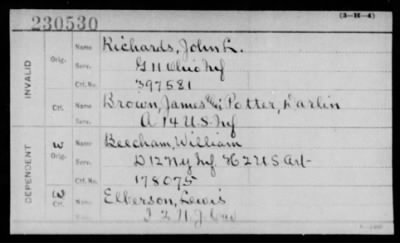 230530
(3-H-4)
INVALID
Orig. Name Richards, John L.
Serv. G 11 Ohio Inf
Ctf. No. 397581
Ctf. Name Brown, James Potter, Darlin
Serv. A 14 U.S. Inf
DEPENDENT
W Orig. Name Beecham, William
Serv. D 12 N.Y. Inf. & 2 U S Art
Ctf. No. 178075
W Ctf. Name Elberson, Lewis
N.J. Cav